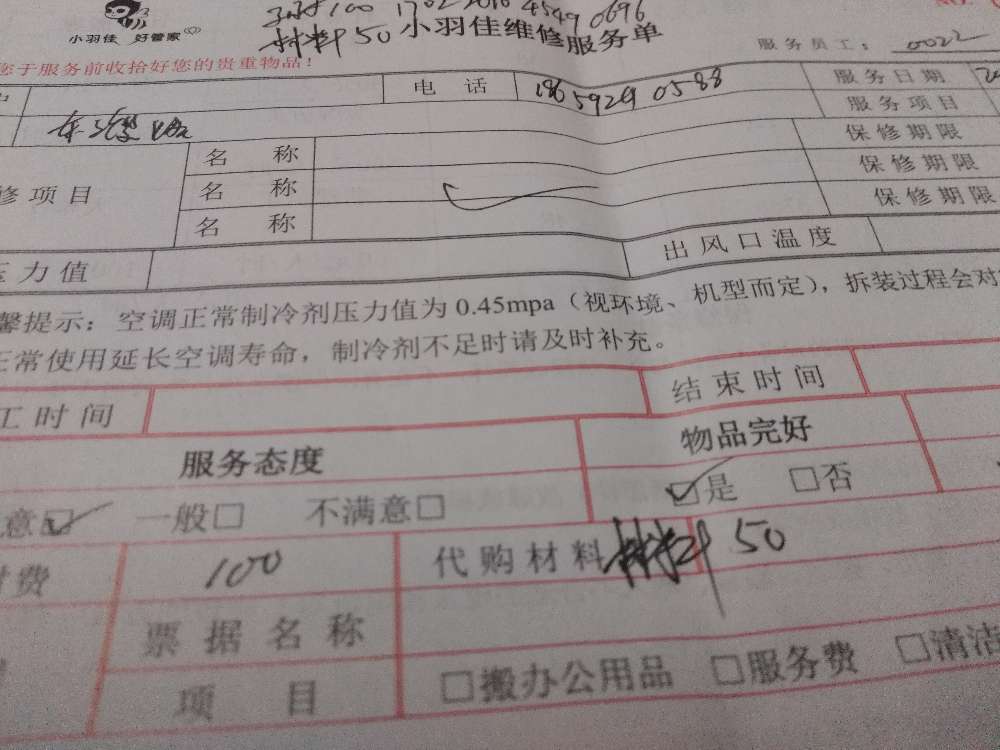 100 1702 2010 4549 0696
小羽佳 好管家
材料 50 小羽佳维修服务单
服务员工: 0022
您于服务前收拾好您的贵重物品!
电 话 服务日期
服务项目
名 称 保修期限
修项目 名 称 保修期限
名 称 保修期限
压力值 出风口温度
馨提示: 空调正常制冷剂压力值为 0.45mpa (视环境、机型而定), 拆装过程会对
正常使用延长空调寿命, 制冷剂不足时请及时补充。
工时间 结束时间
服务态度 物品完好
意☑ 一般□ 不满意□ ☑是 □否
付费 100 代购材料 材料 50
票据名称
项 目 □搬办公用品 □服务费 □清洁